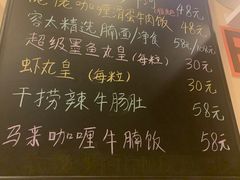 咖喱滑蛋牛肉饭 48元
容太精选腩面/净食 58元/
超级墨鱼丸皇(每粒) 30元
虾丸皇(每粒) 30元
干捞辣牛肠肚 58元
马来咖喱牛腩饭 58元